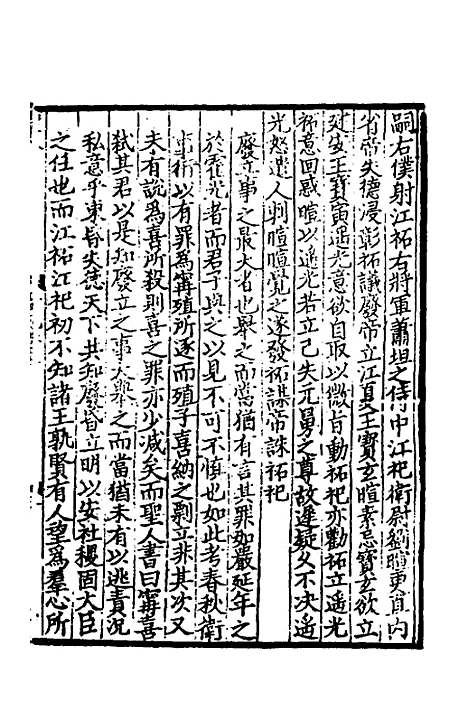 嗣右僕射江祏右將軍蕭坦之侍中江祀衛尉劉暄更直内
省帝失德浸彰祏議廢帝立江夏王寶玄暄素忌寶玄欲立
建安王寶寅遥光意欲自取以微旨動祏祀亦勸祏立遥光
祏意回惑暄以遥光若立己失元舅之尊故遲疑久不决遥
光怒遣人刺暄暄覺之遂發祏謀帝誅祏祀
廢立事之最大者也舉之而當猶有言其罪如嚴延年之
於霍光者而君子與之以見不可不慎也如此考春秋衛
衎以有罪為甯殖所逐而殖子喜納之剽立非其次又
未有說為喜所殺則喜之罪亦少減矣而聖人書曰甯喜
弑其君以是知廢立之事大舉之而當猶未有以逃責况
私意乎東昏失德天下共知廢昏立明以安社稷固大臣
之任也而江祏江祀初不知諸王孰賢有人望為羣心所